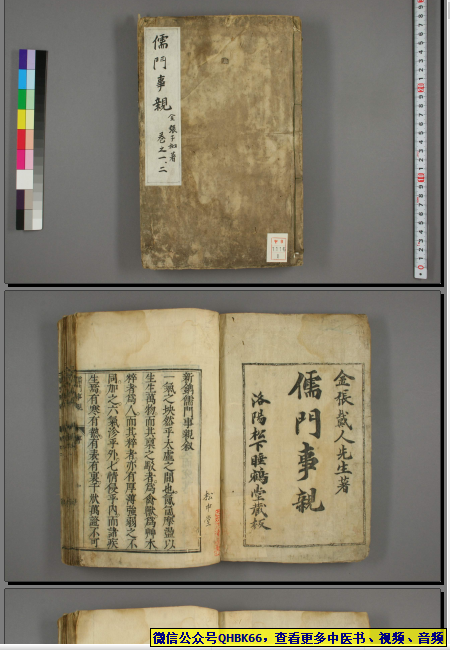 儒門事親
金 張子和著
卷之一、二
金張戴人先生著
儒門事親
洛陽松下睡鶴堂藏板
新鋟儒門事親叙
一氣之坱圠乎太虛之間也氤氳摩盪以
生生萬物而其稟之駁者為禽獸為艸木
粹者為人而其粹者亦有厚薄強弱之不
同加之六氣沴乎外七情侵乎內而諸疾
生焉有寒有熱有表有裏千狀萬證不可
微信公众号QHBK66，查看更多中医书、视频、音频